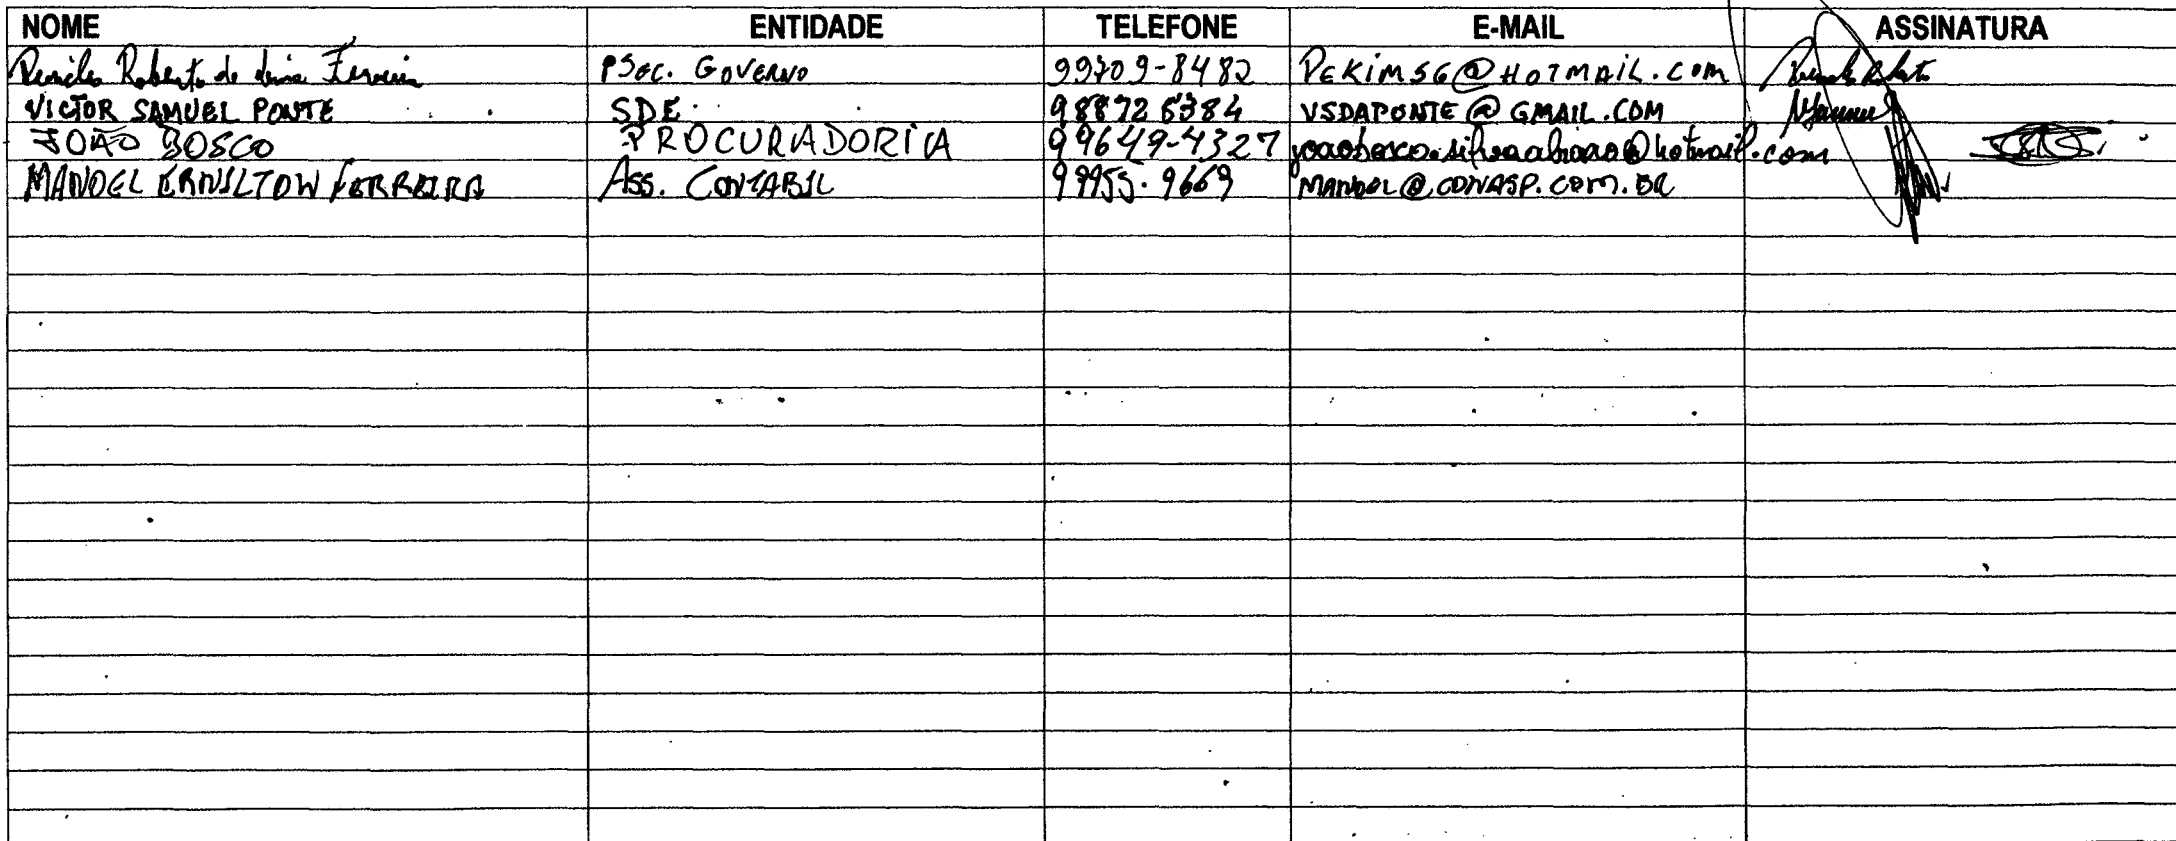 NOME ENTIDADE TELEFONE E-MAIL ASSINATURA
Roberto de Lima Ferreira PSec. GOVERNO 99709-8482 PEKIM56@HOTMAIL.COM
VICTOR SAMUEL PONTE SDE 98872 5384 VSDAPONTE@GMAIL.COM
JOÃO BOSCO PROCURADORIA 99649-4327
MANOEL FERREIRA ASS. CONTABIL 99955.9669 MANOEL@CONASP.COM.BR